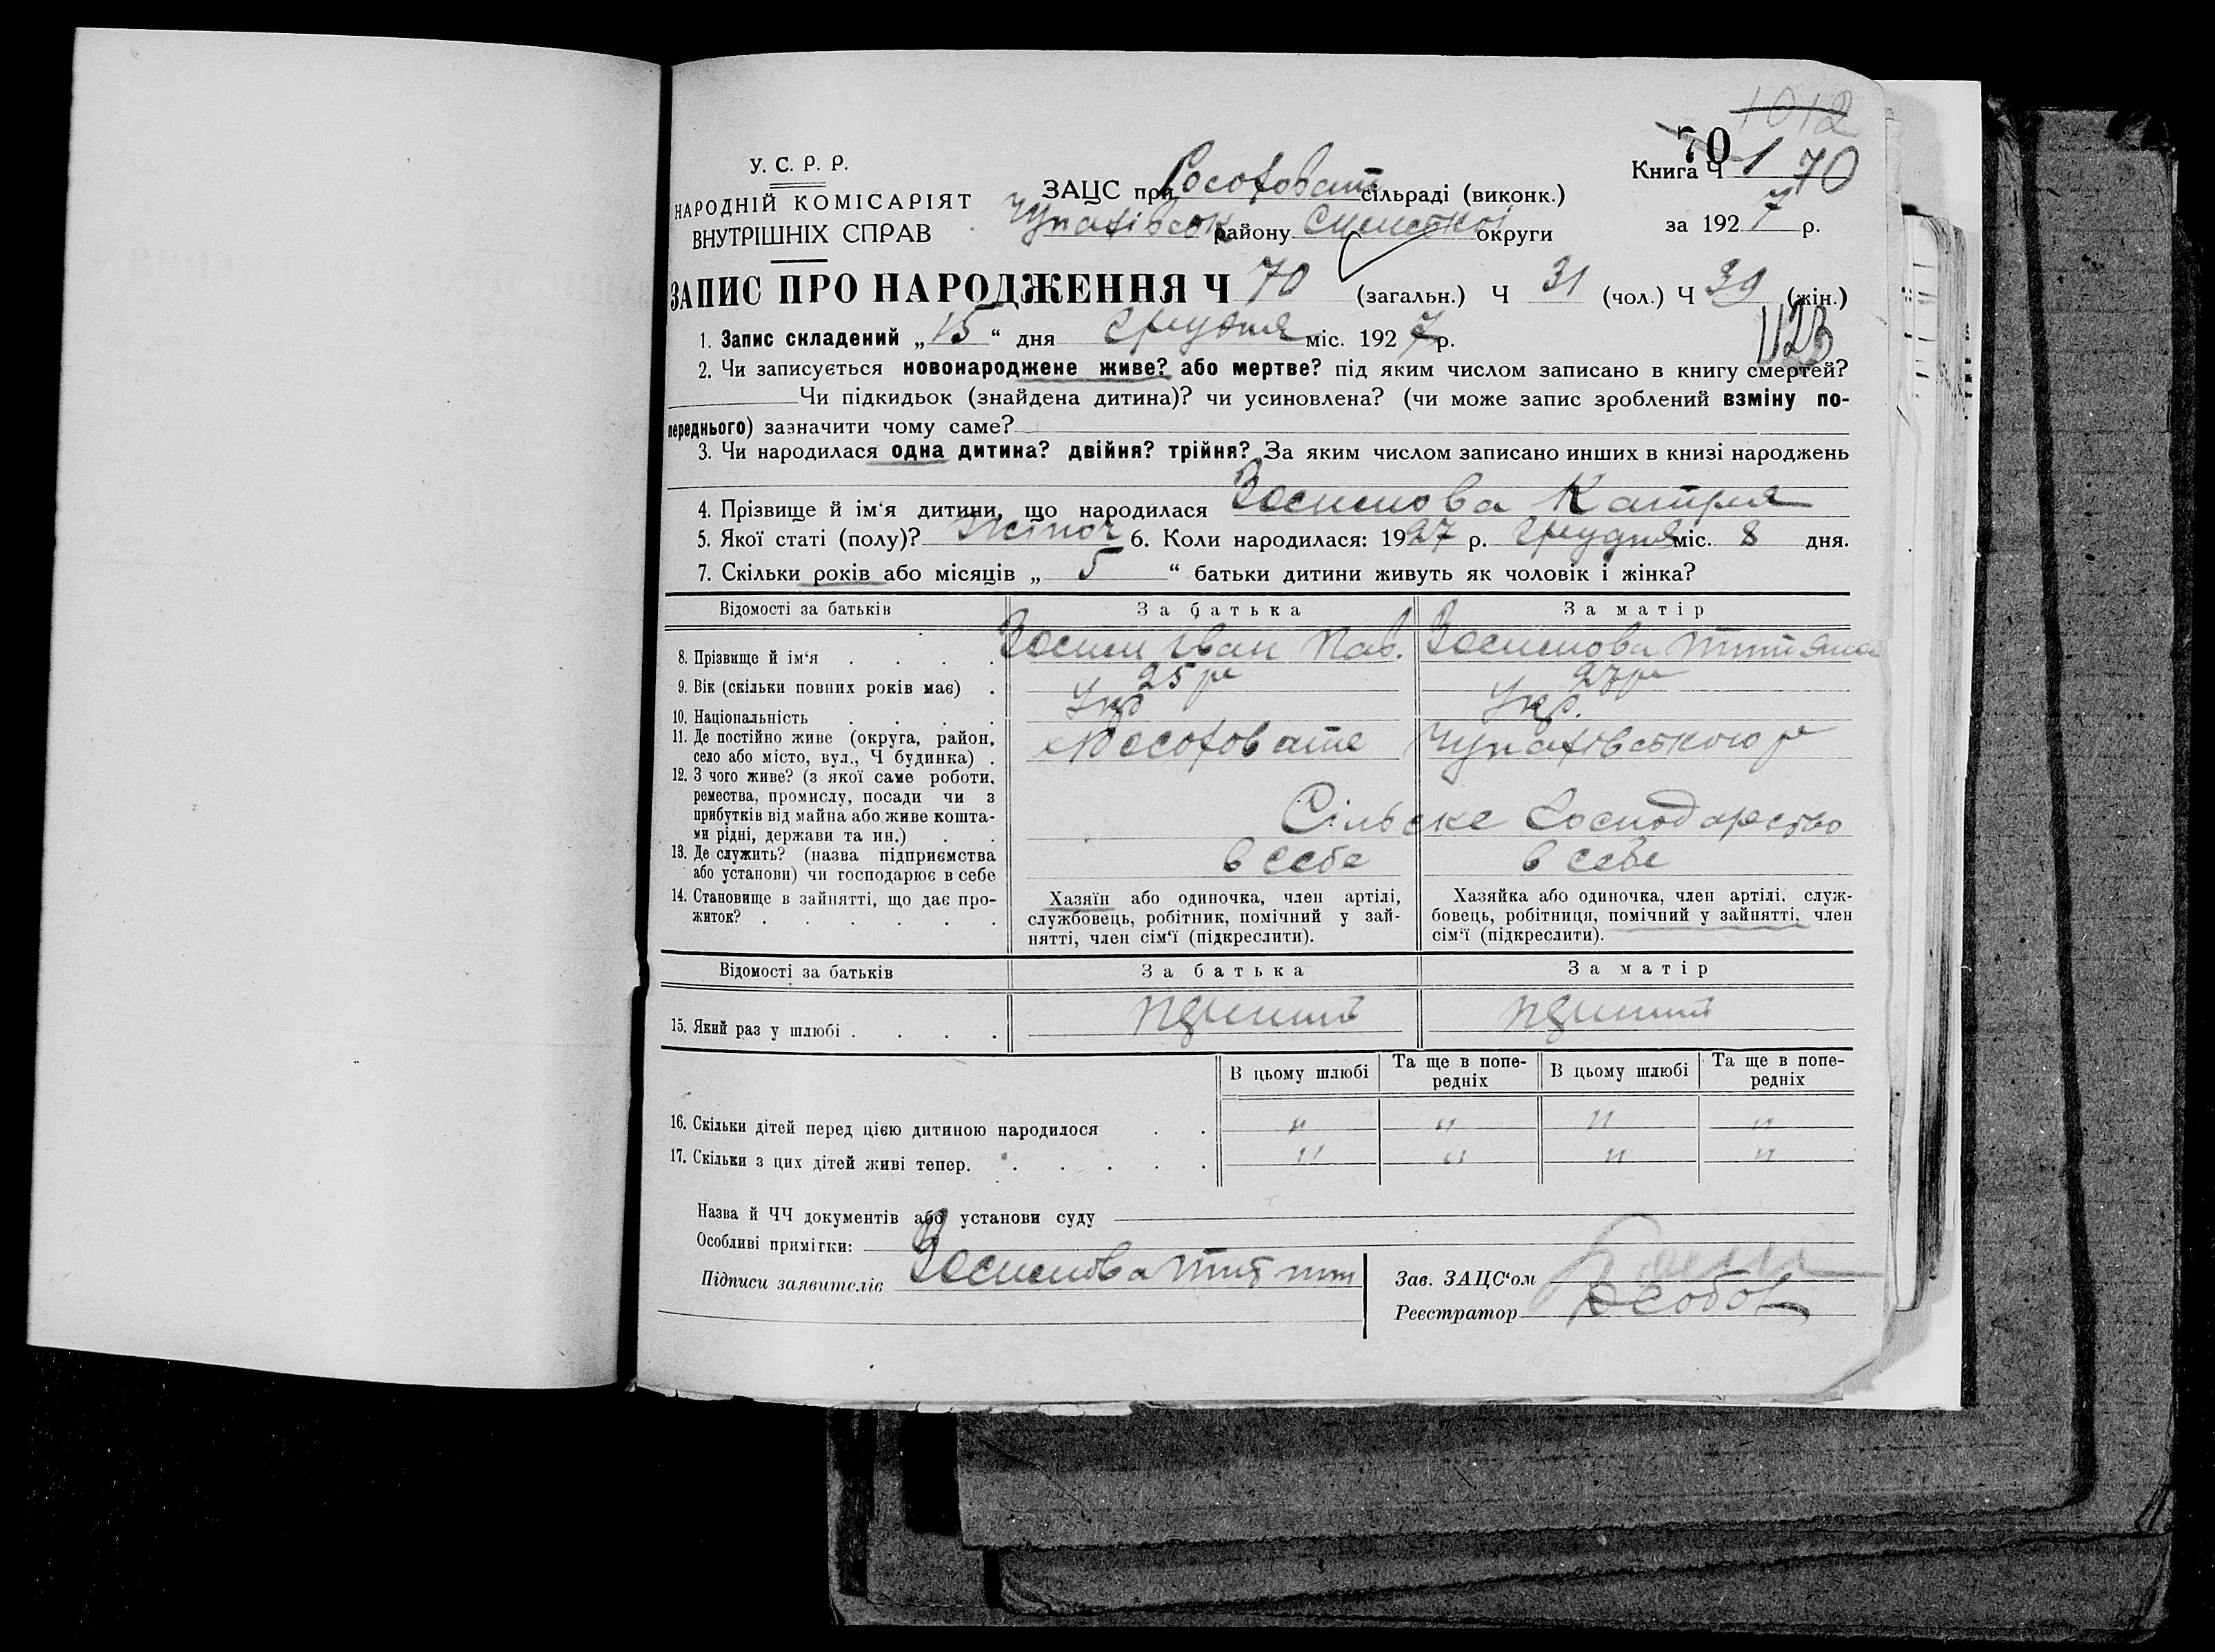 1012
70
У. С. Р. Р.
Книга Ч 1 70
ЗАЦС при сільраді (виконк.)
НАРОДНІЙ КОМІСАРІЯТ
району округи
за 1927 р.
ВНУТРІШНІХ СПРАВ
ЗАПИС ПРО НАРОДЖЕННЯ Ч 70 (загальн.) Ч 31 (чол.) Ч 39 (жін.)
1. Запис складений „15“ дня Грудня міс. 1927 р.
2. Чи записується новонароджене живе? або мертве? під яким числом записано в книгу смертей?
Чи підкидьок (знайдена дитина)? чи усиновлена? (чи може запис зроблений взміну по-
переднього) зазначити чому саме?
3. Чи народилася одна дитина? двійня? трійня? За яким числом записано инших в книзі народжень
4. Прізвище й ім‘я дитини, що народилася Катря
5. Якої статі (полу)? Жіноч 6. Коли народилася: 1927 р. Грудня міс. 8 дня.
7. Скільки років або місяців „ 5 “ батьки дитини живуть як чоловік і жінка?
Відомості за батьків За батька За матір
8. Прізвище й ім‘я . . . . Іван Пав.
9. Вік (скільки повних років має) . 25 р 27 р
10. Національність . . . . Укр Укр.
11. Де постійно живе (округа, район,
село або місто, вул., Ч будинка) .
12. З чого живе? (з якої саме роботи,
ремества, промислу, посади чи з
прибутків від майна або живе кошта-
ми рідні, держави та ин.) . . Сільске Господарство
13. Де служить? (назва підприємства
або установи) чи господарює в себе в себе в себе
14. Становище в зайнятті, що дає про-
житок? . . . . . .
Хазяїн або одиночка, член артілі,
службовець, робітник, помічний у зай-
нятті, член сім‘ї (підкреслити).
Хазяйка або одиночка, член артілі, служ-
бовець, робітниця, помічний у зайнятті, член
сім‘ї (підкреслити).
Відомості за батьків За батька За матір
15. Який раз у шлюбі . . . .
В цьому шлюбі Та ще в попе-
редніх В цьому шлюбі Та ще в попе-
редніх
16. Скільки дітей перед цією дитиною народилося . . " " " "
17. Скільки з цих дітей живі тепер. . . . . . " " " "
Назва й ЧЧ документів або установи суду
Особливі примітки:
Підписи заявителів
Зав. ЗАЦС‘ом
Реєстратор